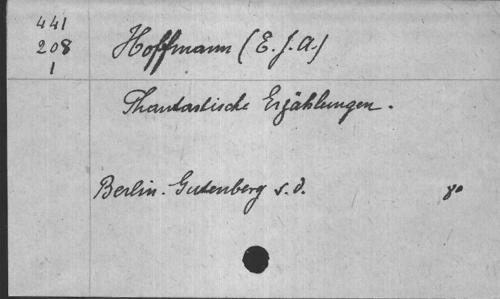 441
208
1
Hoffmann (E. J. A.)
Phantastische Erzählungen.
Berlin. Gutenberg s. d. 8°